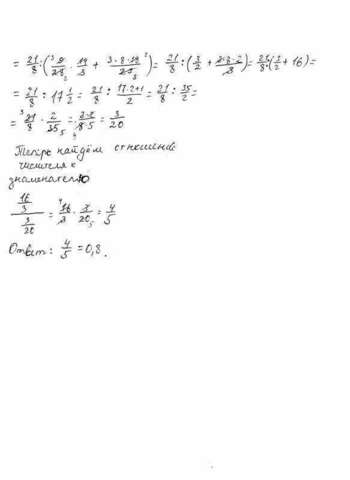 = 21/8 : (³9/28₂ · 14/3 + 3·8·14²/21₈) = 21/8 : (3/2 + 2·8·2/2) = 21/8 : (3/2 + 16) =
= 21/8 : 17 1/2 = 21/8 : (17·2+1)/2 = 21/8 : 35/2 =
= ³21/8 · 2/35₅ = 3·2/8·5 = 3/20
Теперь найдём отношение
числителя к
знаменателю
16/3 / 3/20 = ⁴16/3 · 3/20₅ = 4/5
Ответ: 4/5 = 0,8.